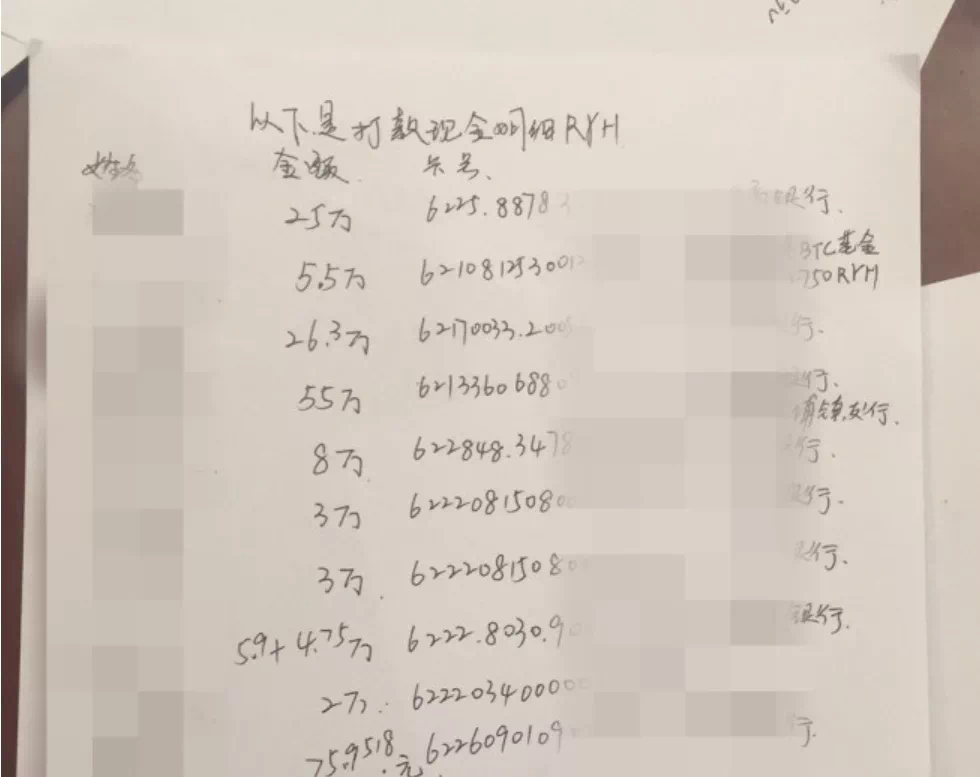 以下是打款现金明细RYH
姓名 金额 卡号、
25万 6225.8878 银行.
BTC基金
5.5万 6210812530012 750RYH
26.3万 62170033.200 行.
55万 6213360688 行.
镇支行.
8万 622848.3478 行.
3万 62220815080 行.
3万 62220815080 行.
5.9+4.75万 6222.8030.9 银行.
2万. 62220340000
75.9518.元 6226090109 行.